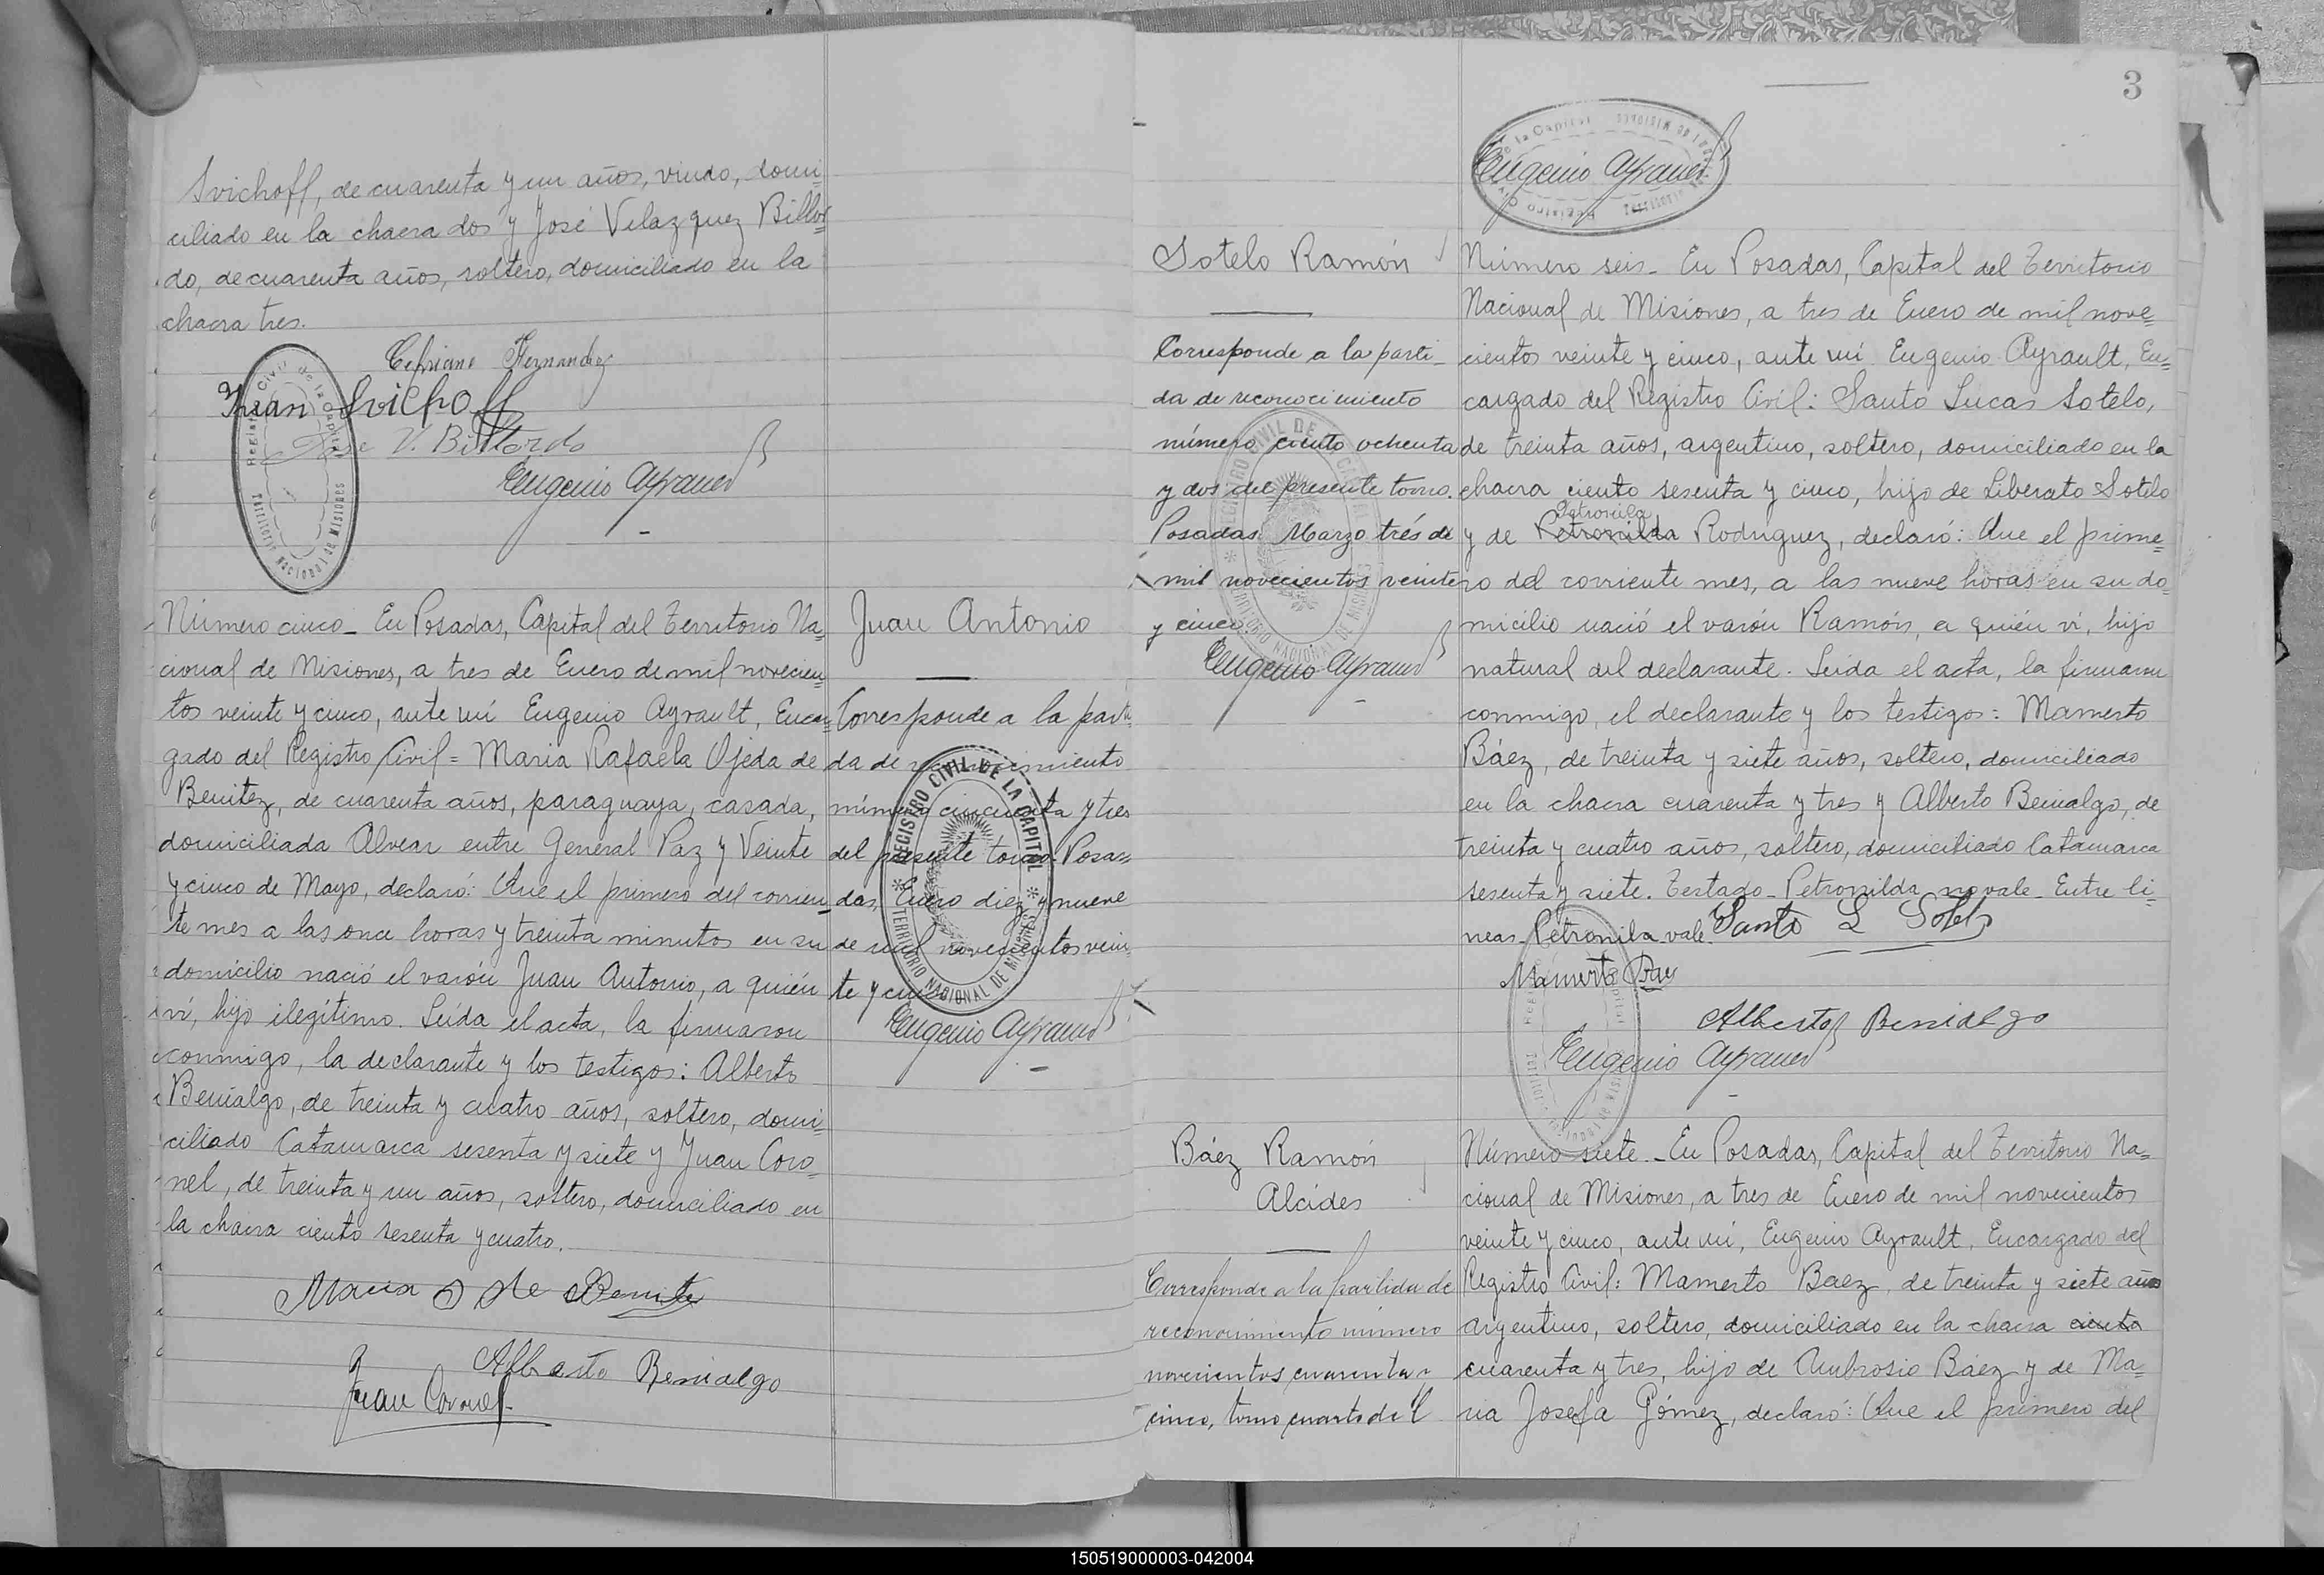 Svichoff, de cuarenta y un años, viudo, domi-
ciliado en la chacra dos y José Velazquez Billor
do, de cuarenta años, soltero, domiciliado en la
chacra tres.
Cipriano Fernandez
Juan Svichoff
Jose V. Billordo
Eugenio Ayrault
Número cinco_ En Posadas, Capital del Territorio Na=
cional de Misiones, a tres de Enero de mil novecien
tos veinte y cinco, ante mí Eugenio Ayrault, Encar=
gado del Registro Civil = Maria Rafaela Ojeda de
Benitez, de cuarenta años, paraguaya, casada,
domiciliada Alvear entre General Paz y Veinte
y cinco de Mayo, declaró: Que el primero del corrien_
te mes a las once horas y treinta minutos en su
domicilio nació el varón Juan Antonio, a quién
ví, hijo ilegítimo. Leída el acta, la firmaron
conmigo, la declarante y los testigos: Alberto
Benialgo, de treinta y cuatro años, soltero, domi-
ciliado Catamarca sesenta y siete y Juan Coro=
nel, de treinta y un años, soltero, domiciliado en
la chacra ciento sesenta y cuatro.
Maria O de Benite
Alberto Benialgo
Juan Coronel
Juan Antonio
Corresponde a la parti-
da de reconocimiento
número cincuenta y tres
del presente tomo. Posa=
das, Enero diez y nueve
de mil novecientos vein
te y cinco
REGISTRO CIVIL DE LA CAPITAL
TERRITORIO NACIONAL DE MISIONES
Eugenio Ayrault
3
Eugenio Ayrault
Sotelo Ramón
Corresponde a la parti_
da de reconocimiento
número ciento ochenta
y dos del presente tomo.
Posadas Marzo trés de
mil novecientos veinte
y cinco
Eugenio Ayrault
Número seis_ En Posadas, Capital del Territorio
Nacional de Misiones, a tres de Enero de mil nove=
cientos veinte y cinco, ante mí Eugenio Ayrault, En=
cargado del Registro Civil: Santo Lucas Sotelo,
de treinta años, argentino, soltero, domiciliado en la
chacra ciento sesenta y cinco, hijo de Liberato Sotelo
Petronila
y de Petronilda Rodriguez, declaró: Que el prime=
ro del corriente mes, a las nueve horas en su do
micilio nació el varón Ramón, a quién ví, hijo
natural del declarante. Leída el acta, la firmaron
conmigo, el declarante y los testigos: Mamerto
Báez, de treinta y siete años, soltero, domiciliado
en la chacra cuarenta y tres y Alberto Benialgo, de
treinta y cuatro años, soltero, domiciliado Catamarca
sesenta y siete. Testado_ Petronilda no vale_ Entre li-
neas_ Petronila_ vale_ Santo L Sotelo
Mamerto Bae
Alberto Benialgo
Eugenio Ayrault
Báez Ramón
Alcides
Corresponde a la partida de
reconocimiento número
novecientos cuarenta y
cinco, tomo cuarto del
Número siete_ En Posadas, Capital del Territorio Na=
cional de Misiones, a tres de Enero de mil novecientos
veinte y cinco, ante mí, Eugenio Ayrault, Encargado del
Registro Civil: Mamerto Baez, de treinta y siete años
argentino, soltero, domiciliado en la chacra ciento
cuarenta y tres, hijo de Ambrosio Báez y de Ma=
ria Josefa Gómez, declaró: Que el primero del
150519000003-042004